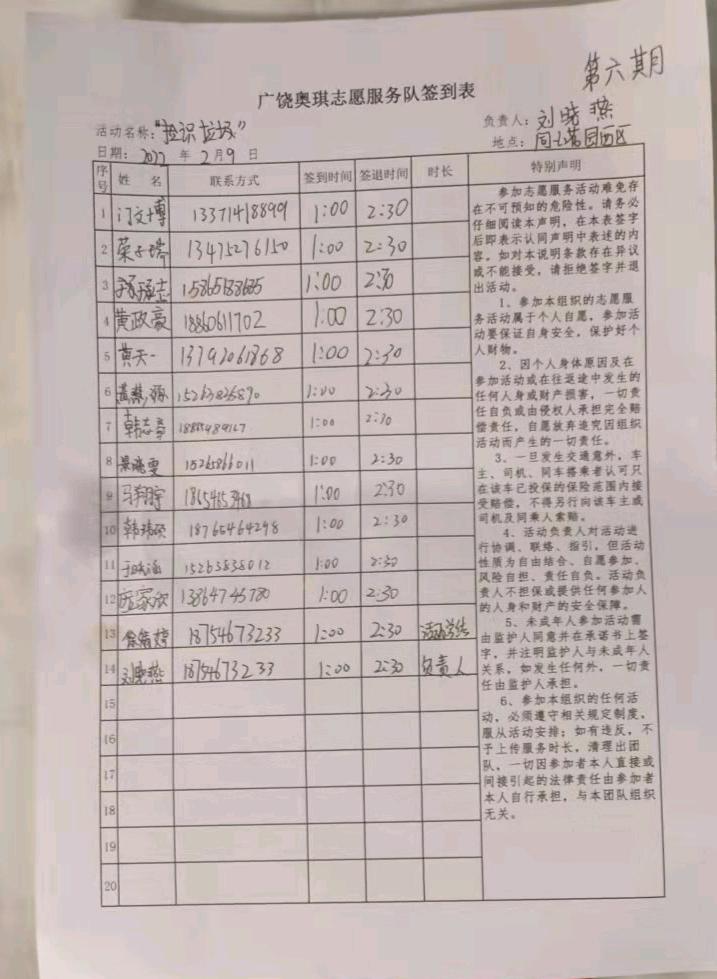 第六期
广饶奥琪志愿服务队签到表
活动名称：“捡识垃圾”
负责人：刘晓燕
日期：2022年2月9日
地点：同七塔园西区
序号 姓名 联系方式 签到时间 签退时间 时长 特别声明
1 门文博 13371418899 1:00 2:30
2 荣子瑞 13475276150 1:00 2:30
3 1:00 2:30
4 黄政豪 18860611702 1:00 2:30
5 黄天一 13792061868 1:00 2:30
6 15263825890 1:00 2:30
7 韩志 1:00 2:30
8 景晓雯 15265866011 1:00 2:30
9 马翔宇 1:00 2:30
10 韩硕 18765464298 1:00 2:30
11 15263838012 1:00 2:30
12 家欣 13864745780 1:00 2:30
13 18754673233 1:00 2:30
14 刘晓燕 18754673233 1:00 2:30 负责人
15
16
17
18
19
20
参加志愿服务活动难免存
在不可预知的危险性。请务必
仔细阅读本声明，在本表签字
后即表示认同声明中表述的内
容，如对本说明条款存在异议
或不能接受，请拒绝签字并退
出活动。
1、参加本组织的志愿服
务活动属于个人自愿，参加活
动要保证自身安全，保护好个
人财物。
2、因个人身体原因及在
参加活动或在往返途中发生的
任何人身或财产损害，一切责
任自负或由侵权人承担完全赔
偿责任，自愿放弃追究因组织
活动而产生的一切责任。
3、一旦发生交通意外，车
主、司机、同车搭乘者认可只
在该车已投保的保险范围内接
受赔偿，不得另行向该车主或
司机及同乘人索赔。
4、活动负责人对活动进
行协调、联络、指引，但活动
性质为自由结合、自愿参加、
风险自担、责任自负。活动负
责人不担保或提供任何参加人
的人身和财产的安全保障。
5、未成年人参加活动需
由监护人同意并在承诺书上签
字，并注明监护人与未成年人
关系，如发生任何外，一切责
任由监护人承担。
6、参加本组织的任何活
动，必须遵守相关规定制度，
服从活动安排；如有违反，不
予上传服务时长，清理出团
队，一切因参加者本人直接或
间接引起的法律责任由参加者
本人自行承担，与本团队组织
无关。